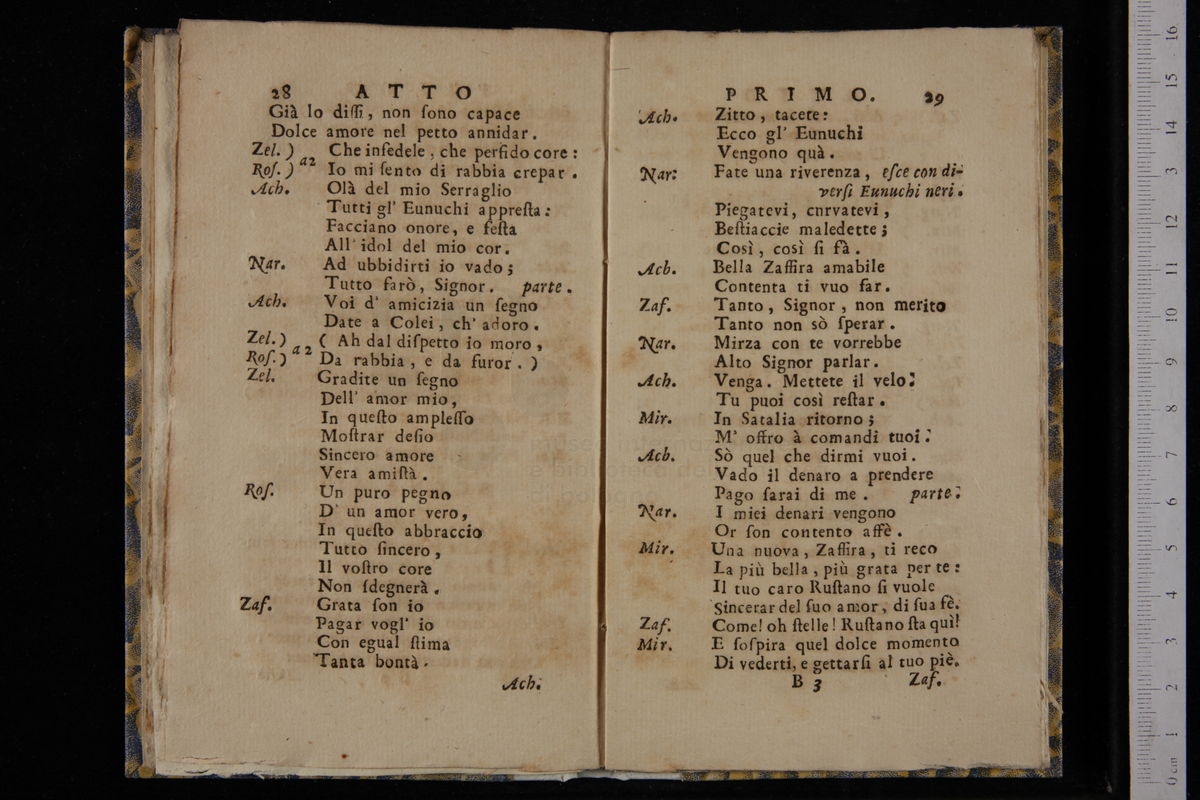 28 ATTO
Già lo diſſi, non ſono capace
Dolce amore nel petto annidar.
Zel. ) a 2 Che infedele, che perfido core:
Roſ. ) Io mi ſento di rabbia crepar.
Ach. Olà del mio Serraglio
Tutti gl' Eunuchi appreſta:
Facciano onore, e feſta
All' idol del mio cor.
Nar. Ad ubbidirti io vado;
Tutto farò, Signor. parte.
Ach. Voi d' amicizia un ſegno
Date a Colei, ch' adoro.
Zel. ) a 2 ( Ah dal diſpetto io moro,
Roſ. ) Da rabbia, e da furor. )
Zel. Gradite un ſegno
Dell' amor mio,
In queſto ampleſſo
Moſtrar deſio
Sincero amore
Vera amiſtà.
Roſ. Un puro pegno
D' un amor vero,
In queſto abbraccio
Tutto ſincero,
Il voſtro core
Non ſdegnerà.
Zaf. Grata ſon io
Pagar vogl' io
Con egual ſtima
Tanta bontà.
Ach.
PRIMO. 29
Ach. Zitto, tacete:
Ecco gl' Eunuchi
Vengono quà.
Nar: Fate una riverenza, eſce con di-
verſi Eunuchi neri.
Piegatevi, cnrvatevi,
Beſtiaccie maledette;
Così, così ſi fà.
Ach. Bella Zaffira amabile
Contenta ti vuo far.
Zaf. Tanto, Signor, non merito
Tanto non sò ſperar.
Nar. Mirza con te vorrebbe
Alto Signor parlar.
Ach. Venga. Mettete il velo:
Tu puoi così reſtar.
Mir. In Satalia ritorno;
M' offro à comandi tuoi:
Ach. Sò quel che dirmi vuoi.
Vado il denaro a prendere
Pago ſarai di me. parte:
Nar. I miei denari vengono
Or ſon contento affè.
Mir. Una nuova, Zaffira, ti reco
La più bella, più grata per te:
Il tuo caro Ruſtano ſi vuole
Sincerar del ſuo amor, di ſua fè.
Zaf. Come! oh ſtelle! Ruſtano ſta quì!
Mir. E ſoſpira quel dolce momento
Di vederti, e gettarſi al tuo piè.
B 3 Zaf.